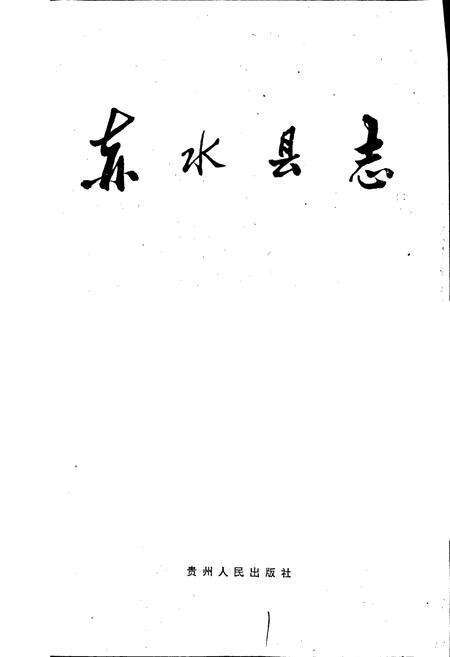 赤水县志
贵州人民出版社
1